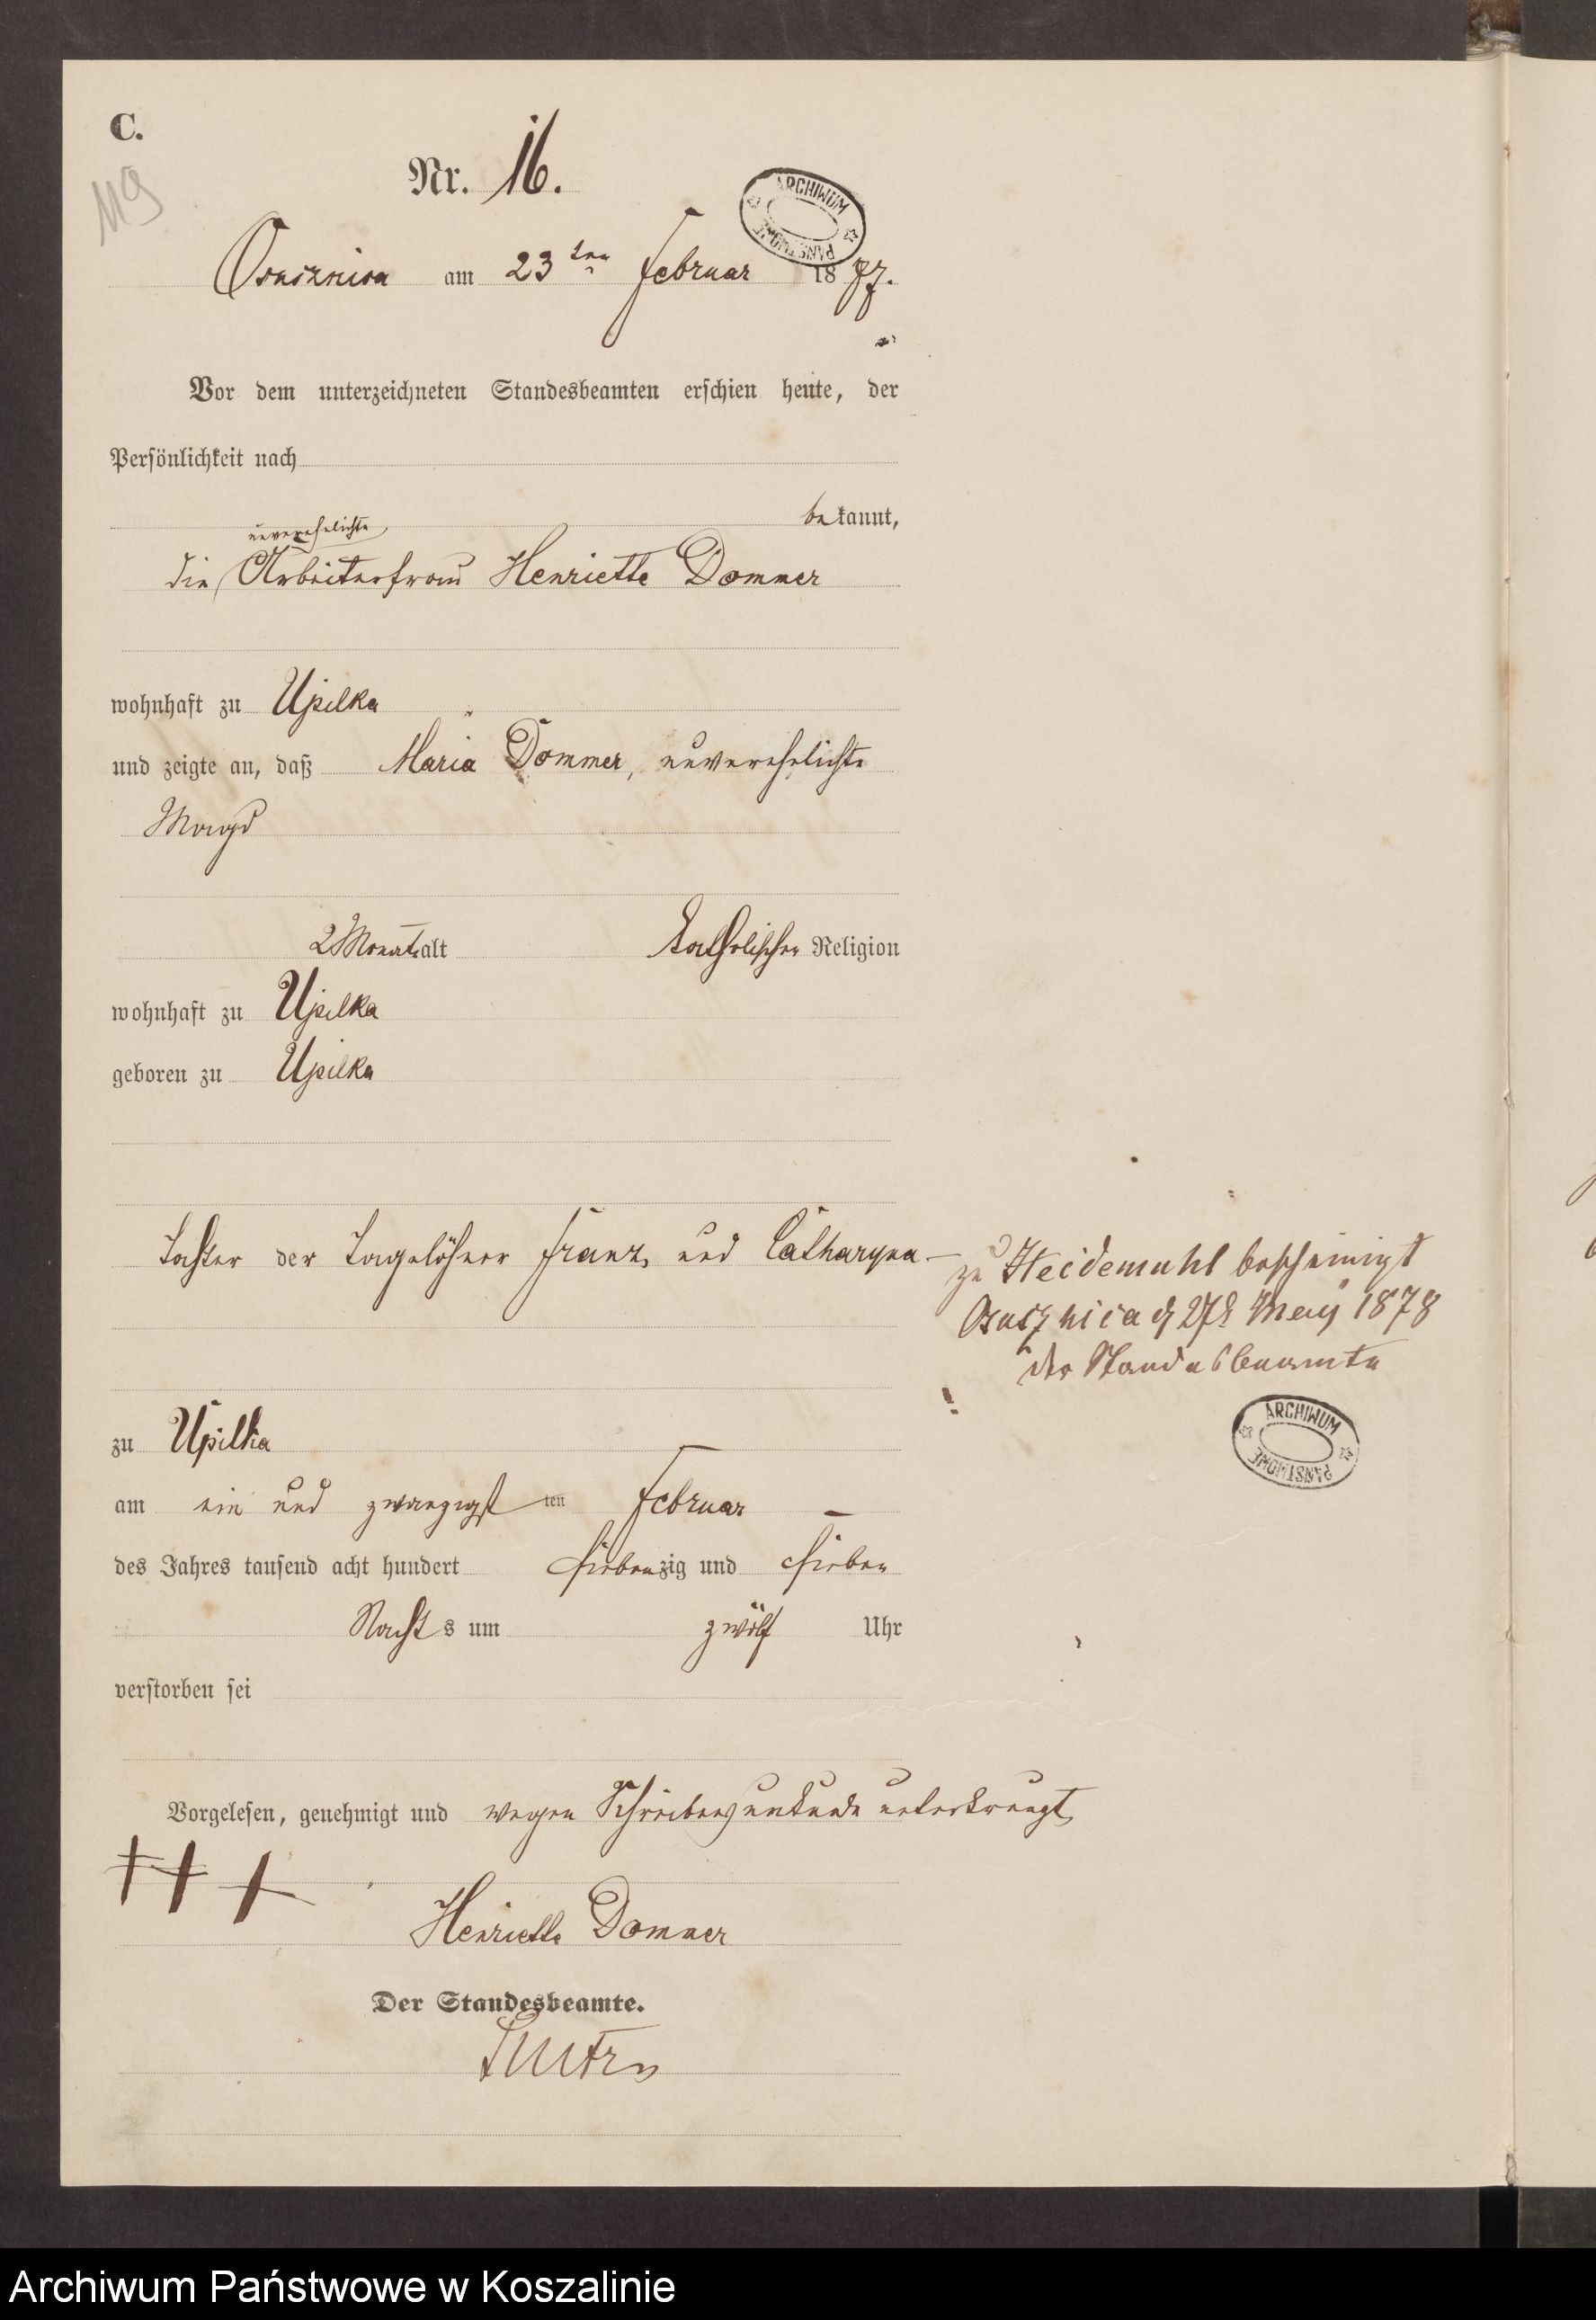 C.
119
Nr. 16.
ARCHIWUM PAŃSTWOWE
Osusznica am 23ten Februar 1877.
Vor dem unterzeichneten Standesbeamten erschien heute, der
Persönlichkeit nach
bekannt,
unverehelichte
die Arbeiterfrau Henriette Dommer
wohnhaft zu Upilka
und zeigte an, daß Maria Dommer, unverehelichte
Magd
2 Monat alt katholischer Religion
wohnhaft zu Upilka
geboren zu Upilka
Tochter der Tagelöhner Franz und Catharyna
zu Heidemühl bescheinigt
Osusznica d 27t May 1878
der Standesbeamte
ARCHIWUM PAŃSTWOWE
zu Upilka
am ein und zwanzigsten Februar
des Jahres tausend acht hundert siebenzig und sieben
Nachts um zwölf Uhr
verstorben sei
Vorgelesen, genehmigt und wegen Schreibensunkunde unterkreuzt
+++
Henriette Dommer
Der Standesbeamte.
Archiwum Państwowe w Koszalinie